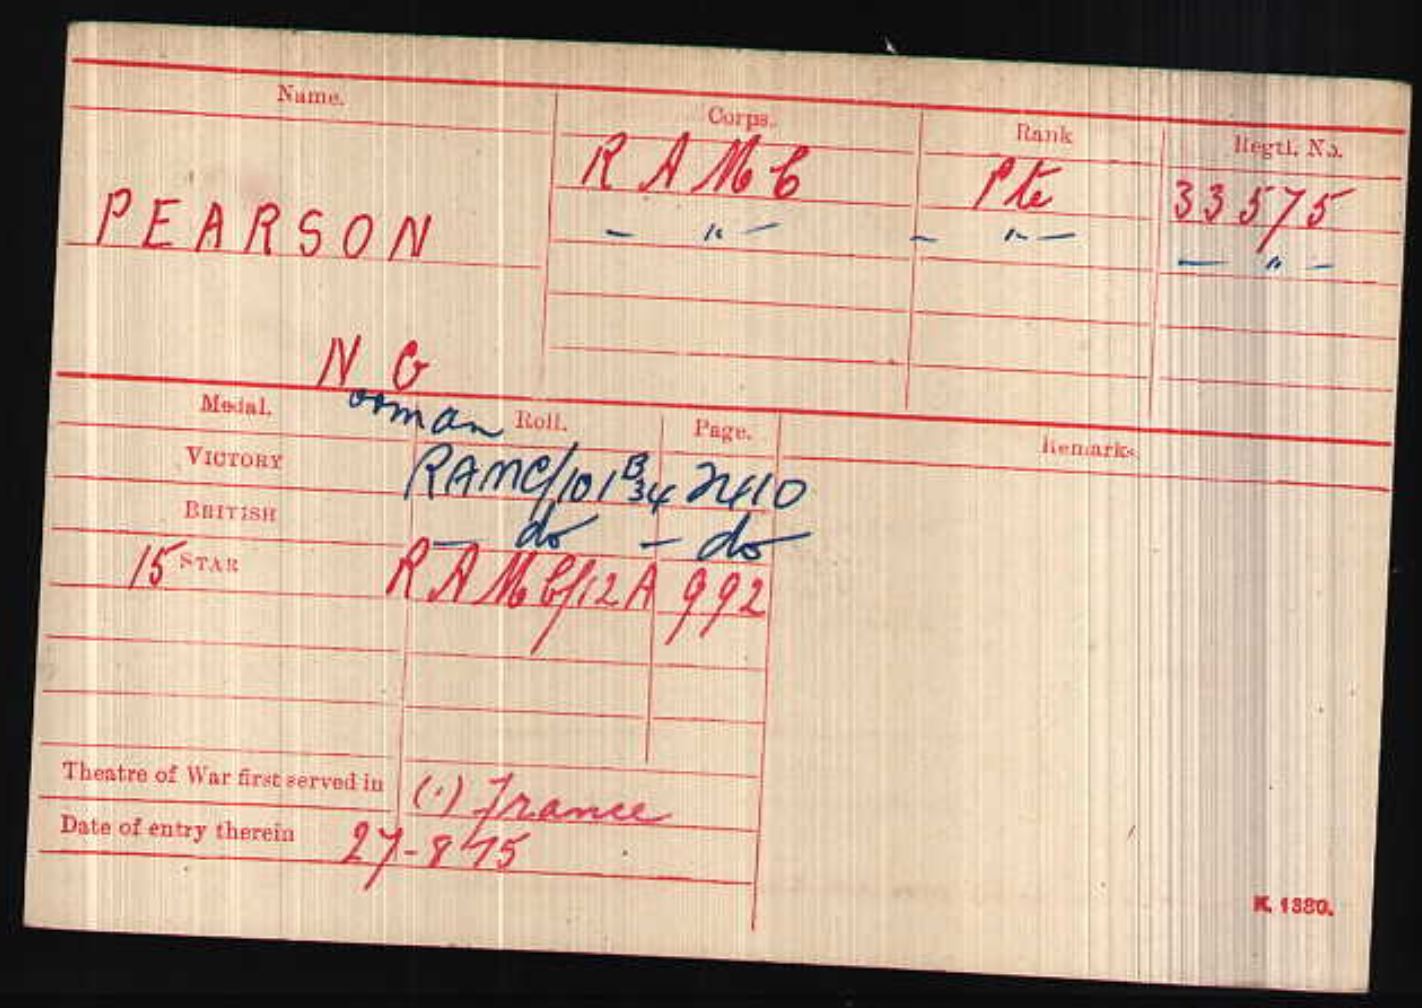 Name. Corps. Rank Regtl. No.
R A M C Pte 33575
PEARSON - " - - " - - " -
N G
orman
Medal. Roll. Page. Remarks.
VICTORY RAMC/101 B34 2410
BRITISH - do - do
15 STAR R A M C/12A 992
Theatre of War first served in (1) France
Date of entry therein 27-8-15
K. 1380.